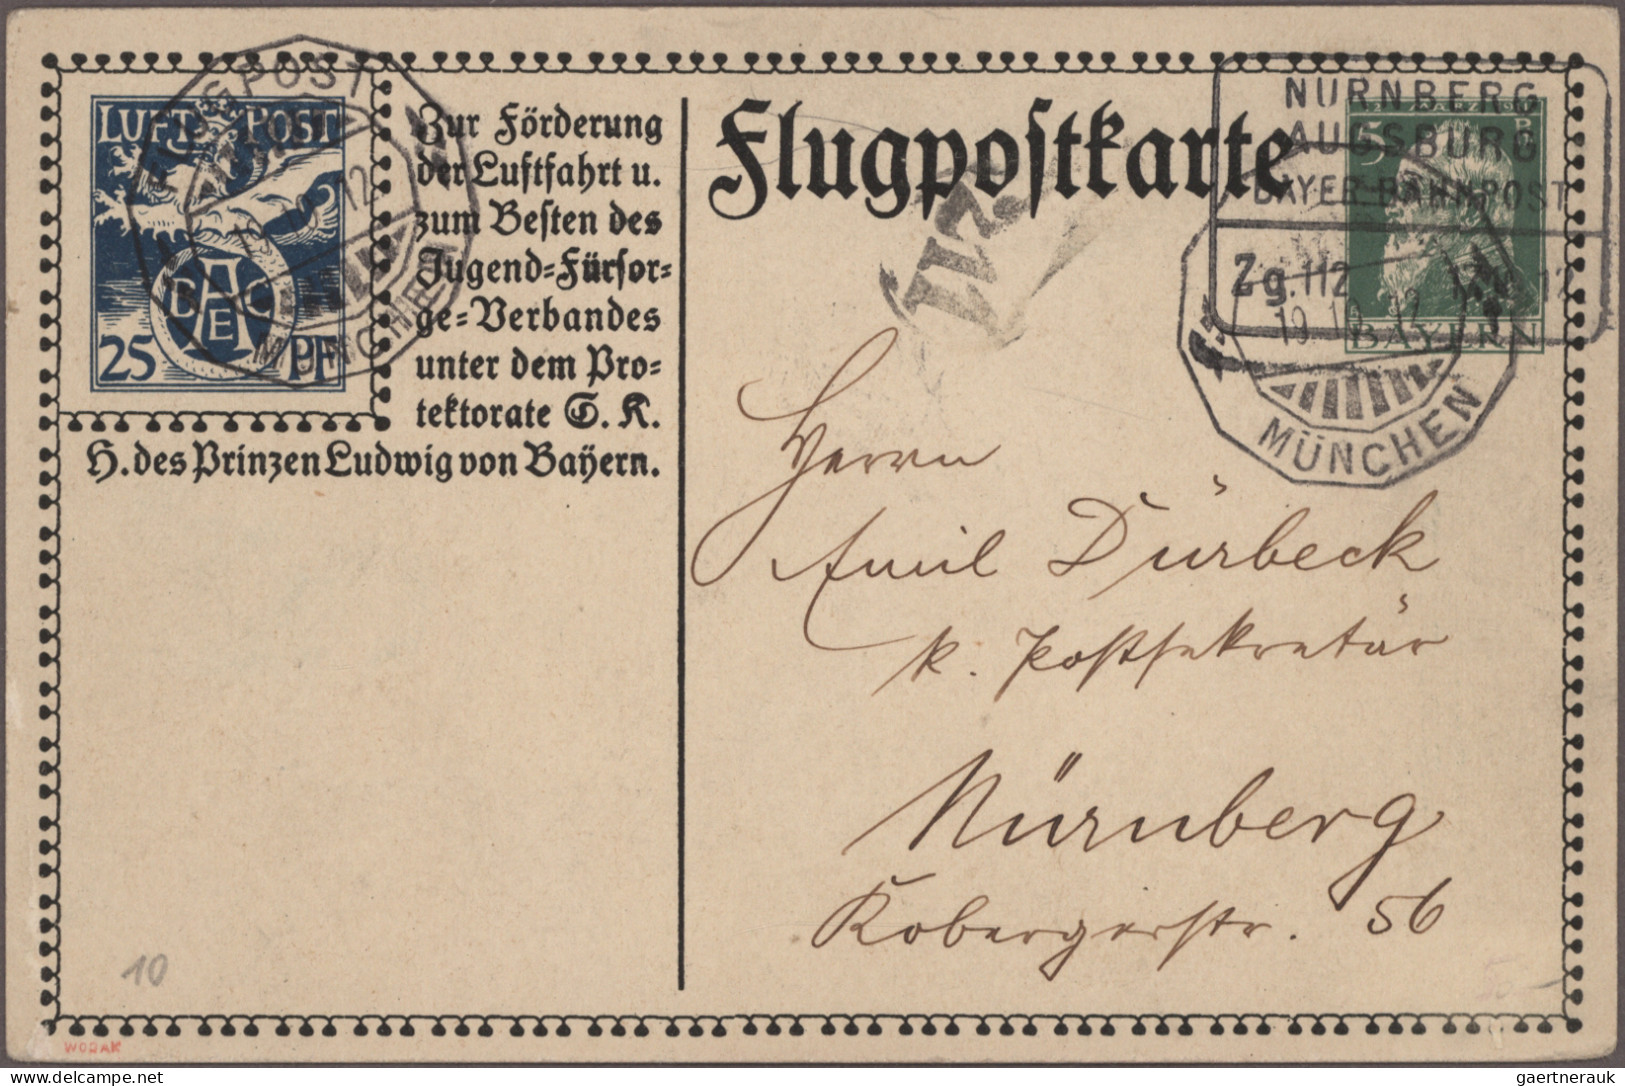 LUFT POST
25 PF
FLUGPOST
MÜNCHEN
Zur Förderung
der Luftfahrt u.
zum Besten des
Jugend=Fürsor=
ge=Verbandes
unter dem Pro=
tektorate S. K.
H. des Prinzen Ludwig von Bayern.
Flugpostkarte
NÜRNBERG
AUGSBURG
BAYER. BAHNPOST
Zg. 112
5
BAYERN
19. 10. 12
MÜNCHEN
Herrn
Emil Dürbeck
k. Postsekretär
Nürnberg
Kobergerstr. 56
10
WODAK
gaertnerauk